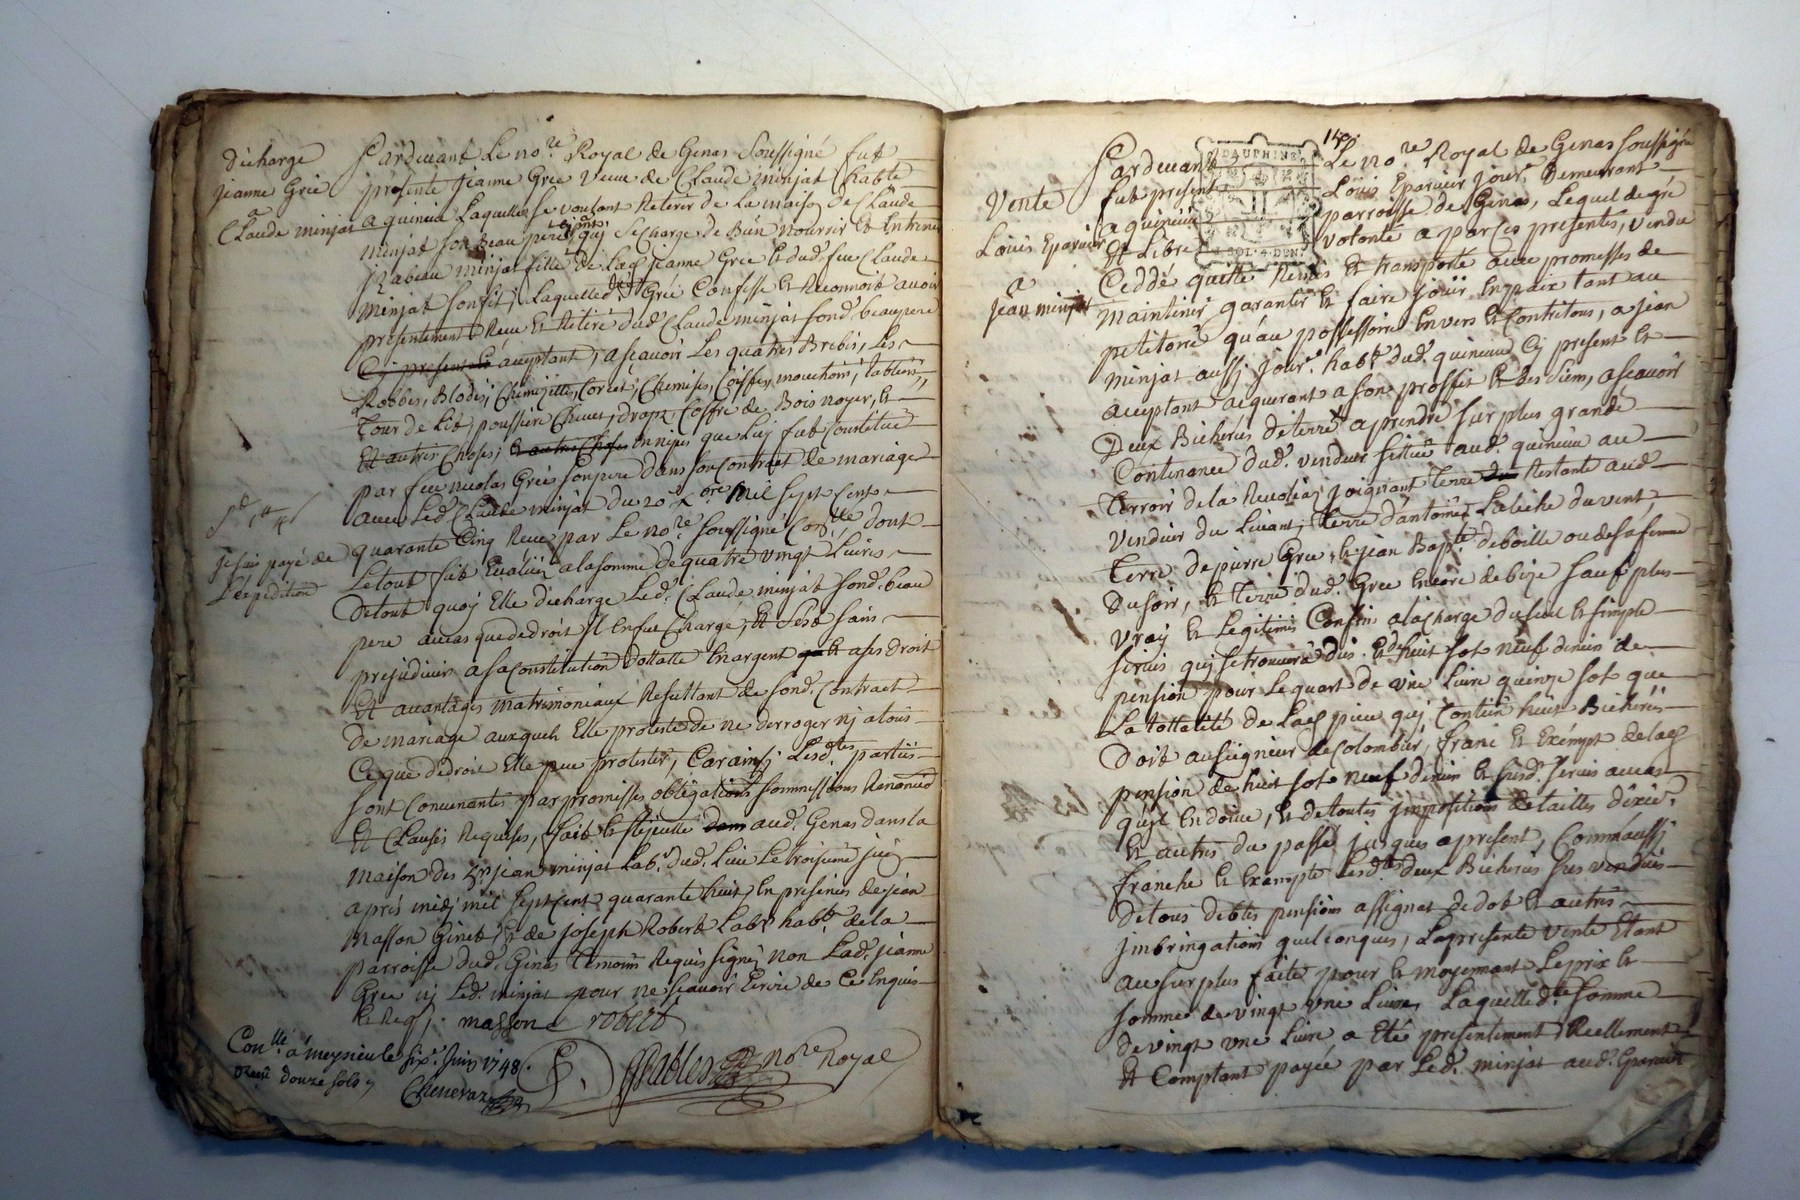 décharge
jeanne Grée
a
Claude minjat
Pardevant Le no.re Royal de Genas Soussigné fut
présente jeanne Grée veuve de Claude minjat hab.te
a quincieu Laquelle se voulant Retirer de La maison de Claude
minjat son Beau pere qui se charge de Bien nourrir et Entretenir
minjat fille de Lad. jeanne Grée et dud. feu Claude
minjat son fils, Laquelle Grée Confesse et Reconnoit avoir
présentement Reçu et Retiré dud. Claude minjat sond. beaupere
Cy present et acceptant, a scavoir Les quatres Brebis, Les
Robbes, Chemises, Coiffes, mouchoirs, tabliers,
Tour de Lit, Coffre de Bois noyer, et
Et autres Choses, et autres Choses en nipes que Luy fut Constitué
par feu nicolas Grée son pere dans son Contract de mariage
avec Led. Claude minjat du 20.e X.bre mil Sept Cent
quarante Cinq Reçu par Le no.re Soussigné Con.llé dont
je suis payé de
L'expédition
Le tout fut Evalué a la somme de quatre vingt Livres
De tout quoy Elle décharge Led. Claude minjat sond. beau
pere au cas que de droit Il en fut Chargé, et Cest sans
prejudice a sa Constitution dottalle En argent et a ses droit
Et avantages matrimoniaux Resultant de sond. Contract
De mariage auxquels Elle proteste de ne derroger nj a tous
Ce que de droit Elle peut protester, Car ainsj Lesd.tes parties
sont Convenantes par promesses obligations soumissions Renon.ons
Et Clauses Requises, fait et aud. Genas dans la
maison de jean minjat Lab.r dud. Lieu Le troisieme juin
apres midj mil Sept Cent quarante huit En presence de jean
Masson Ginet et de joseph Robert Lab.rs hab.ts de la
parroisse dud. Genas Temoins Requis signés non Lad. jeanne
Grée nj Led. minjat pour ne sçavoir Ecrire de Ce Enquis
et Req. masson robert
Con.llé a meyzieu le six.e juin 1748.
Reçu douze sols
Chenevaz
no.re Royal
Vente
Louis Eparvier
a
jean minjat
DAUPHINE
SOL. 4. DEN.
Pardevant Le no.re Royal de Genas Soussigné
fut present Louis Eparvier jour.r Demeurant
a quincieu parroisse de Genas, Lequel de gré
Et Libre volonté a par Ces presentes, vendu
Ceddé quitté Remis et transporté avec promesses de
maintenir garantir et faire jouir En paix tant au
petitoire qu'au possessoire Envers et Contre tous, a jean
minjat aussj jour.r hab.t dud. quincieu Cy present et
acceptant acquerant a son proffit et des siens, a scavoir
Deux Bicherées de terre a prendre sur plus grande
Continance dud. vendeur scittuée aud. quincieu au
Terroir de la joignant Terre Restante aud.
vendeur du Levant, Terre d'antoine du vent,
Terre de pierre Grée, et jean Bap.te deboille ou de sa femme
Du soir, et Terre dud. Grée Encore de bize sauf plus
vray et Legitimes Confins a la Charge du seul et simple
servis quj se trouvera du et d'huit sol neuf deniers de
pension pour Le quart de une Livre quinze sol que
La tottalité de Lad. piece quj Contient huit Bicherées
Doit au seigneur de Colombier, franc et Exempt de lad.
pension de huit sol neuf denier et susd. servis au cas
qu'il En doive, et de toutes jmpositions de tailles
et autres du passé jusques a present, Comme aussj
franche et Exempte Lesd.tes deux Bicherées sus vendues
De tous debtes pensions assignat de dot et autres
jmbringations quelconques, La presente vente Etant
au surplus faite pour et moyennant Le prix et
somme de vingt une Livres Laquelle d.te somme
de vingt une Livre a Eté presentement Reellement
Et Comptant payée par Led. minjat aud. Eparvier